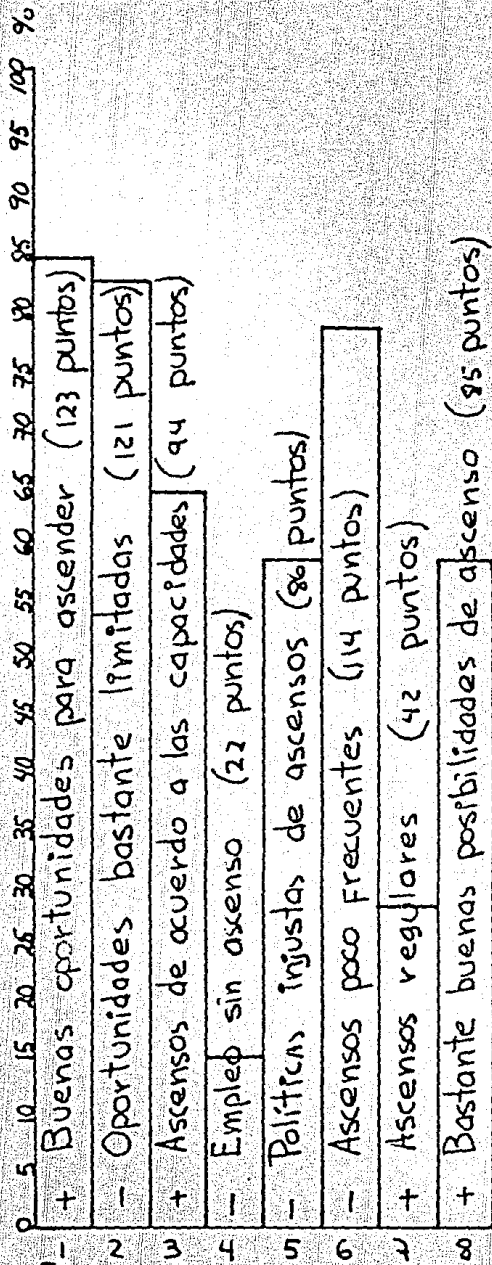 0 5 10 15 20 25 30 35 40 45 50 55 60 65 70 75 80 85 90 95 100 %
1 + Buenas oportunidades para ascender (123 puntos)
2 - Oportunidades bastante limitadas (121 puntos)
3 + Ascensos de acuerdo a las capacidades (94 puntos)
4 - Empleo sin ascenso (22 puntos)
5 - Políticas injustas de ascensos (86 puntos)
6 - Ascensos poco frecuentes (114 puntos)
7 + Ascensos regulares (42 puntos)
8 + Bastante buenas posibilidades de ascenso (85 puntos)